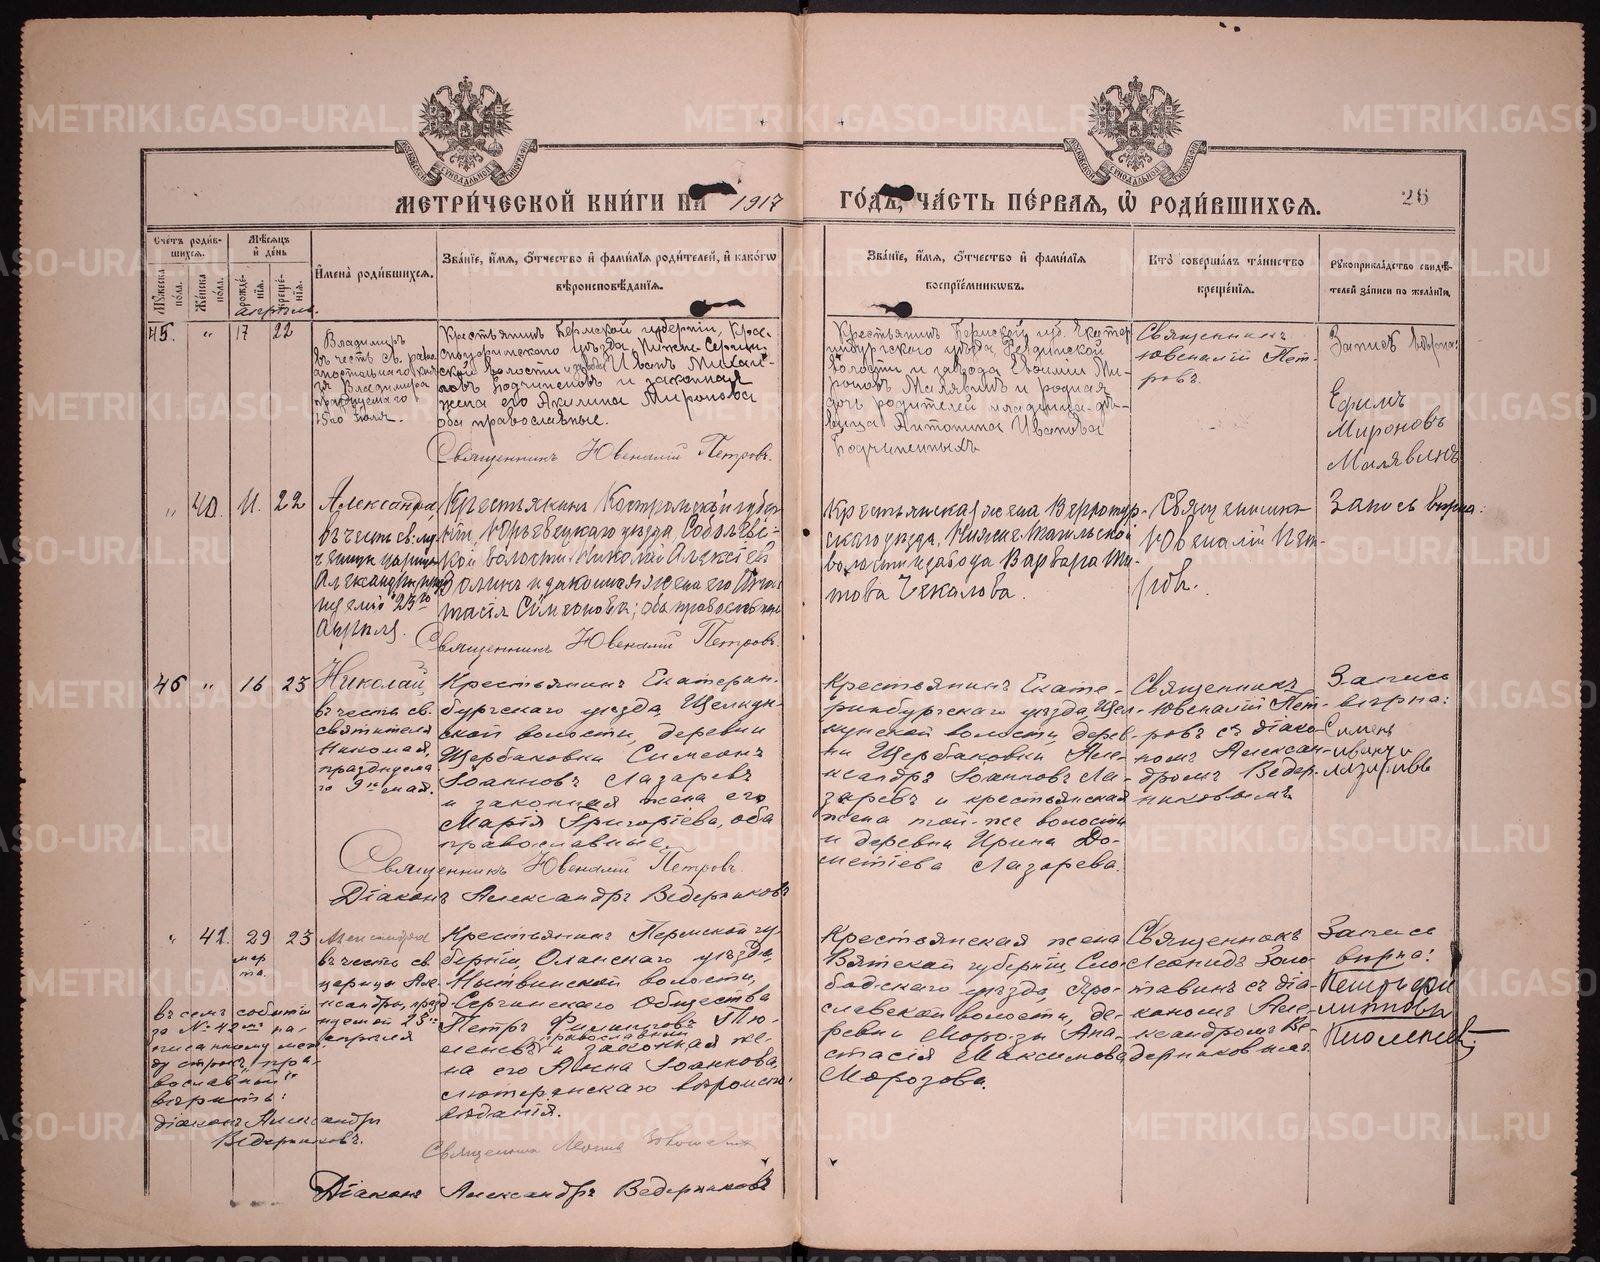 МЕТРИ́ЧЕСКОЙ КНИ́ГИ НА 1917 ГО́ДЪ, ЧА́СТЬ ПЕ́РВАЯ, Ѡ РОДИ́ВШИХСЯ.
26
Счетъ роди́вшихся.
Мѣсяцъ и день
Мꙋжеска пола.
Же́нска пола.
рожде́нїя.
креще́нїя.
И҆мена̀ роди́вшихся.
Зва́нїе, и҆́мя, ѻ҆́тчество и҆ фами́лїя роди́телей, и҆ како́гѡ
вѣроисповѣ́данїя.
Зва́нїе, и҆́мя, ѻ҆́тчество и҆ фами́лїя
воспрїе́мникѡвъ.
Кто̀ соверша́лъ та́инство
креще́нїя.
Рꙋкоприкла́дство свидѣ́-
телей за́писи по жела́нїю.
апрѣль.
45. " 17 22
Владимиръ
въ честь св. равно
апостольнаго кня
зя Владимира
празднуемаго
15го іюля.
Крестьянинъ Пермской губерніи, Крас-
ноуфимскаго уѣзда, Нижне-Сергин-
ской волости и завода Иванъ Михаи-
ловъ Подчиненовъ и законная
жена его Акилина Миронова
оба православные.
Священникъ Ювеналій Петровъ.
Крестьянинъ Пермской губ. Екатер
инбургскаго уѣзда, Ревдинской
волости и завода Евѳимій Ми-
роновъ Малявинъ и родная
дочь родителей младенца дѣ-
вица Антонина Иванова
Подчиненныхъ
Священникъ
Ювеналій Пет-
ровъ.
Запись вѣрна:
Ефимъ
Мироновъ
Малявинъ
" 40. 11. 22
Александра,
въ честь св. му
ченицы царицы
Александры
23го
Апрѣля.
Крестьянинъ Костромской губер-
ніи, Юрьевецкаго уѣзда,
кой волости Николай Алексѣй
и законная жена его
Симеонова; оба православные
Священникъ Ювеналій Петровъ.
Крестьянская жена Верхотур-
скаго уѣзда, Нижне-Тагильской
волости и завода Варвара Ти-
това Чекалова.
Священникъ
Ювеналій Пет-
ровъ.
Запись вѣрна.
46 " 16 23
Николай,
въ честь св.
святителя
Николая
празднуема
го 9го мая.
Крестьянинъ Екатерин-
бургскаго уѣзда, Щелкун-
ской волости, деревни
Щербаковки Симеонъ
Іоанновъ Лазаревъ
и законная жена его
Марія Григоріева, оба
православные.
Священникъ Ювеналій Петровъ.
Діаконъ Александръ Ведерниковъ
Крестьянинъ Екате-
ринбургскаго уѣзда, Щел-
кунской волости, дерев-
ни Щербаковки Але-
ксандръ Іоанновъ Ла-
заревъ и крестьянская
жена той-же волости
и деревни Ирина До-
метіева Лазарева.
Священникъ
Ювеналій Пет-
ровъ съ діако-
номъ Алексан-
дромъ Ведер-
никовымъ
Запись
вѣрна:
Семенъ
Ивановъ
Лазаревъ
" 42. 29 23
мар
та.
Александра
въ честь св.
царицы Але-
ксандры, празд
нуемой 23го
апрѣля
Крестьянинъ Пермской гу-
берніи, Оханскаго уѣзда,
Нытвинской волости,
Сергинскаго Общества
Петръ Филипповъ Тю-
леневъ православный и законная же-
на его Анна Іоаннова,
лютеранскаго вѣроиспо-
вѣданія.
Священникъ Леонидъ Золотавинъ
Діаконъ Александръ Ведерниковъ
въ семъ событіи
за № 42мъ на-
писанному меж
ду строкъ „пра-
вославный"
вѣрить:
діаконъ Александръ
Ведерниковъ.
Крестьянская жена
Вятской губерніи, Сло-
бодскаго уѣзда,
волости, де-
ревни Морозы Ана-
стасія Максимова
Морозова.
Священникъ
Леонидъ Золо-
тавинъ съ діа-
кономъ Але-
ксандромъ Ве-
дерниковымъ
Запись
вѣрна: